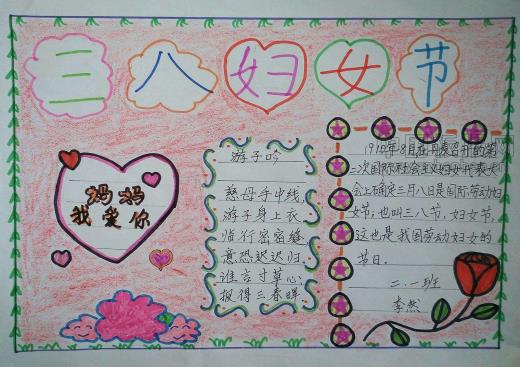 三八妇女节
妈妈
我爱你
游子吟
慈母手中线,
游子身上衣
临行密密缝
意恐迟迟归.
谁言寸草心
报得三春晖
1910年8月在丹麦召开的第
二次国际社会主义妇女代表大
会上确定三月八日是国际劳动妇
女节,也叫三八节,妇女节,
这也是我国劳动妇女的
节日。
二.一班
李然